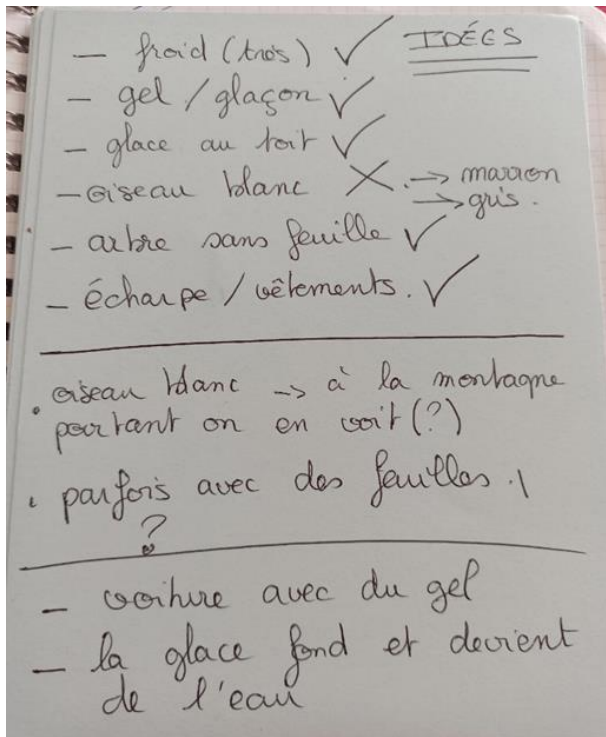 IDÉES
- froid (très) ✓
- gel / glaçon ✓
- glace au toit ✓
- oiseau blanc X. → marron
→ gris.
- arbre sans feuille ✓
- écharpe / vêtements. ✓
• oiseau blanc → à la montagne
pourtant on en voit (?)
• parfois avec des feuilles. !
?
- voiture avec du gel
- la glace fond et devient
de l'eau